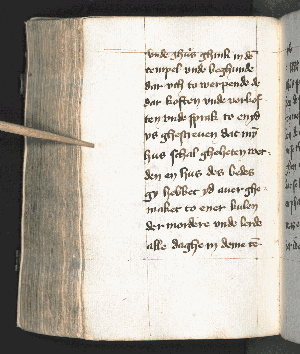 vnde ihūs ghink in dē
tempel vnde beghunde
dar vth to werpende de
dar kosten vnde vorkof
ten vnde sprak to em yd
ys ghescreuen dat mȳ
hus schal gheheten wer-
den en hus des bedes
gy hebbet yd auer ghe-
maket to ener kulen
der mordere vnde lerde
alle daghe in deme tē